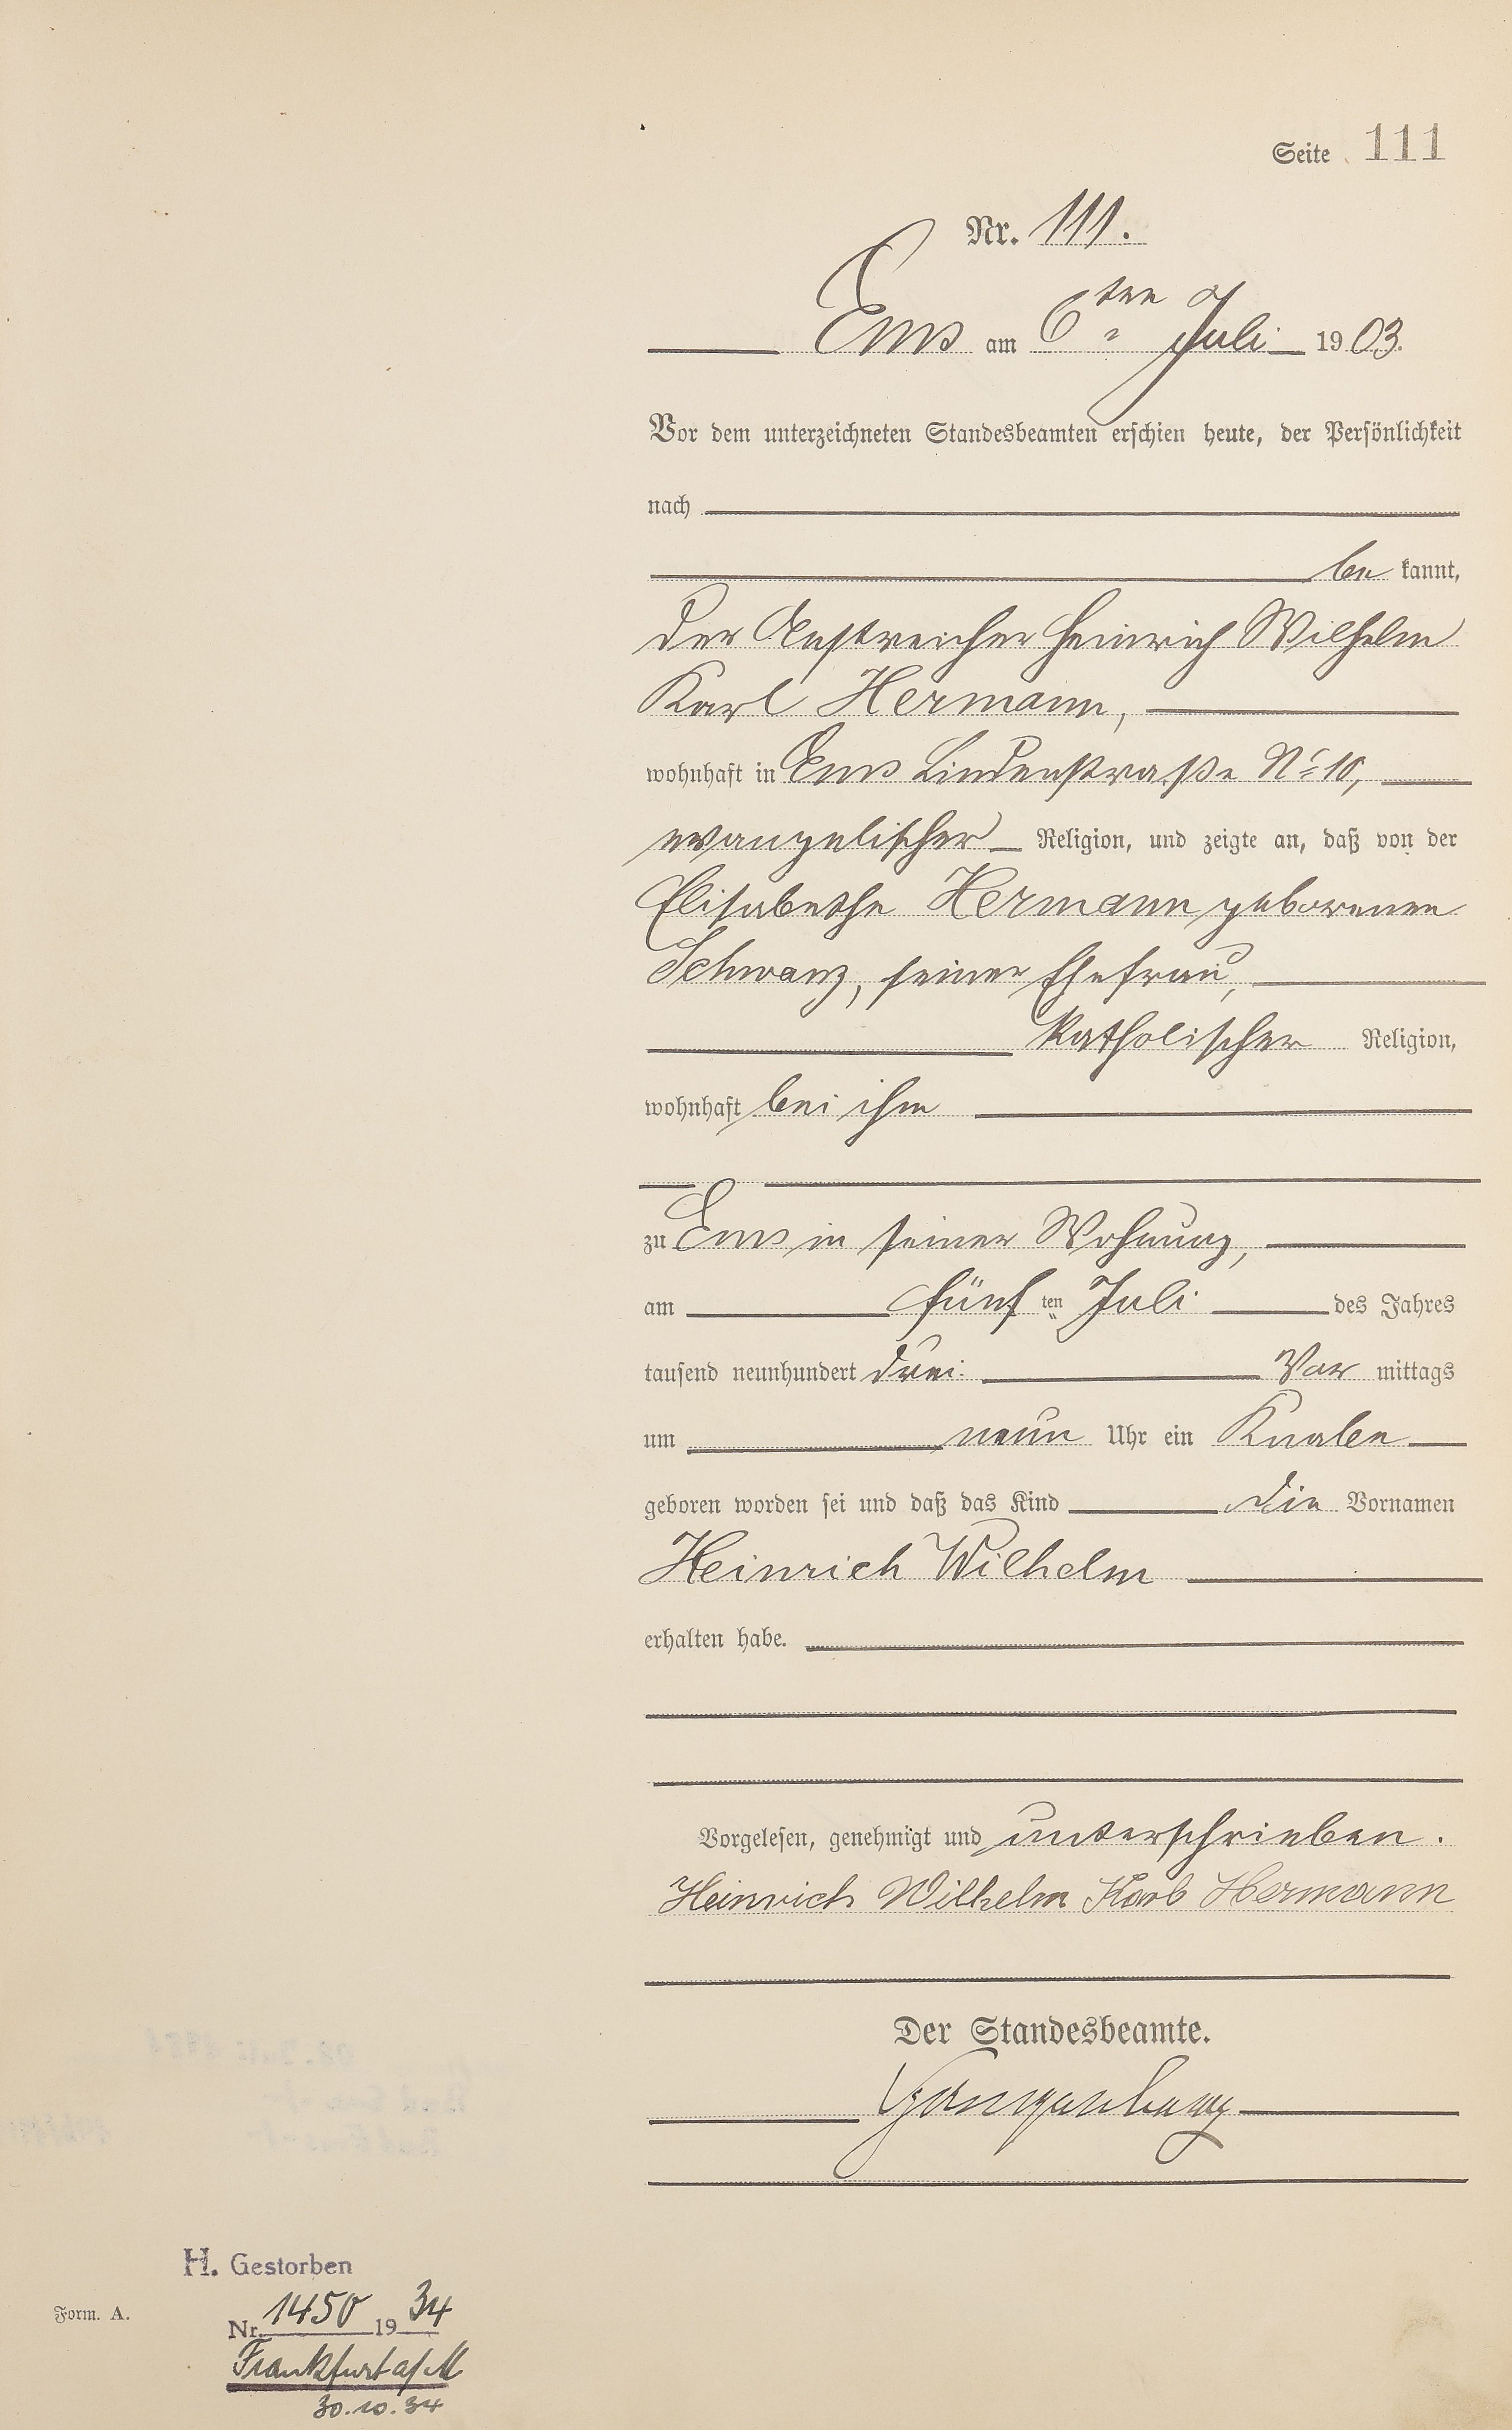 Seite 111
Nr. 111.
Ems am 6ten Juli 1903.
Vor dem unterzeichneten Standesbeamten erschien heute, der Persönlichkeit
nach
be kannt,
der Anstreicher Heinrich Wilhelm
Karl Hermann,
wohnhaft in Ems Lindenstraße No 10,
evangelischer Religion, und zeigte an, daß von der
Elisabethe Hermann geborenen
Schwanz, seiner Ehefrau,
katholischer Religion,
wohnhaft bei ihm
zu Ems in seiner Wohnung,
am fünf ten Juli des Jahres
tausend neunhundert drei Vor mittags
um neun Uhr ein Knabe
geboren worden sei und daß das Kind die Vornamen
Heinrich Wilhelm
erhalten habe.
Vorgelesen, genehmigt und unterschrieben.
Heinrich Wilhelm Karl Hermann
Der Standesbeamte.
H. Gestorben
Form. A.
Nr. 1450 1934
Frankfurt a/M
30.10.34